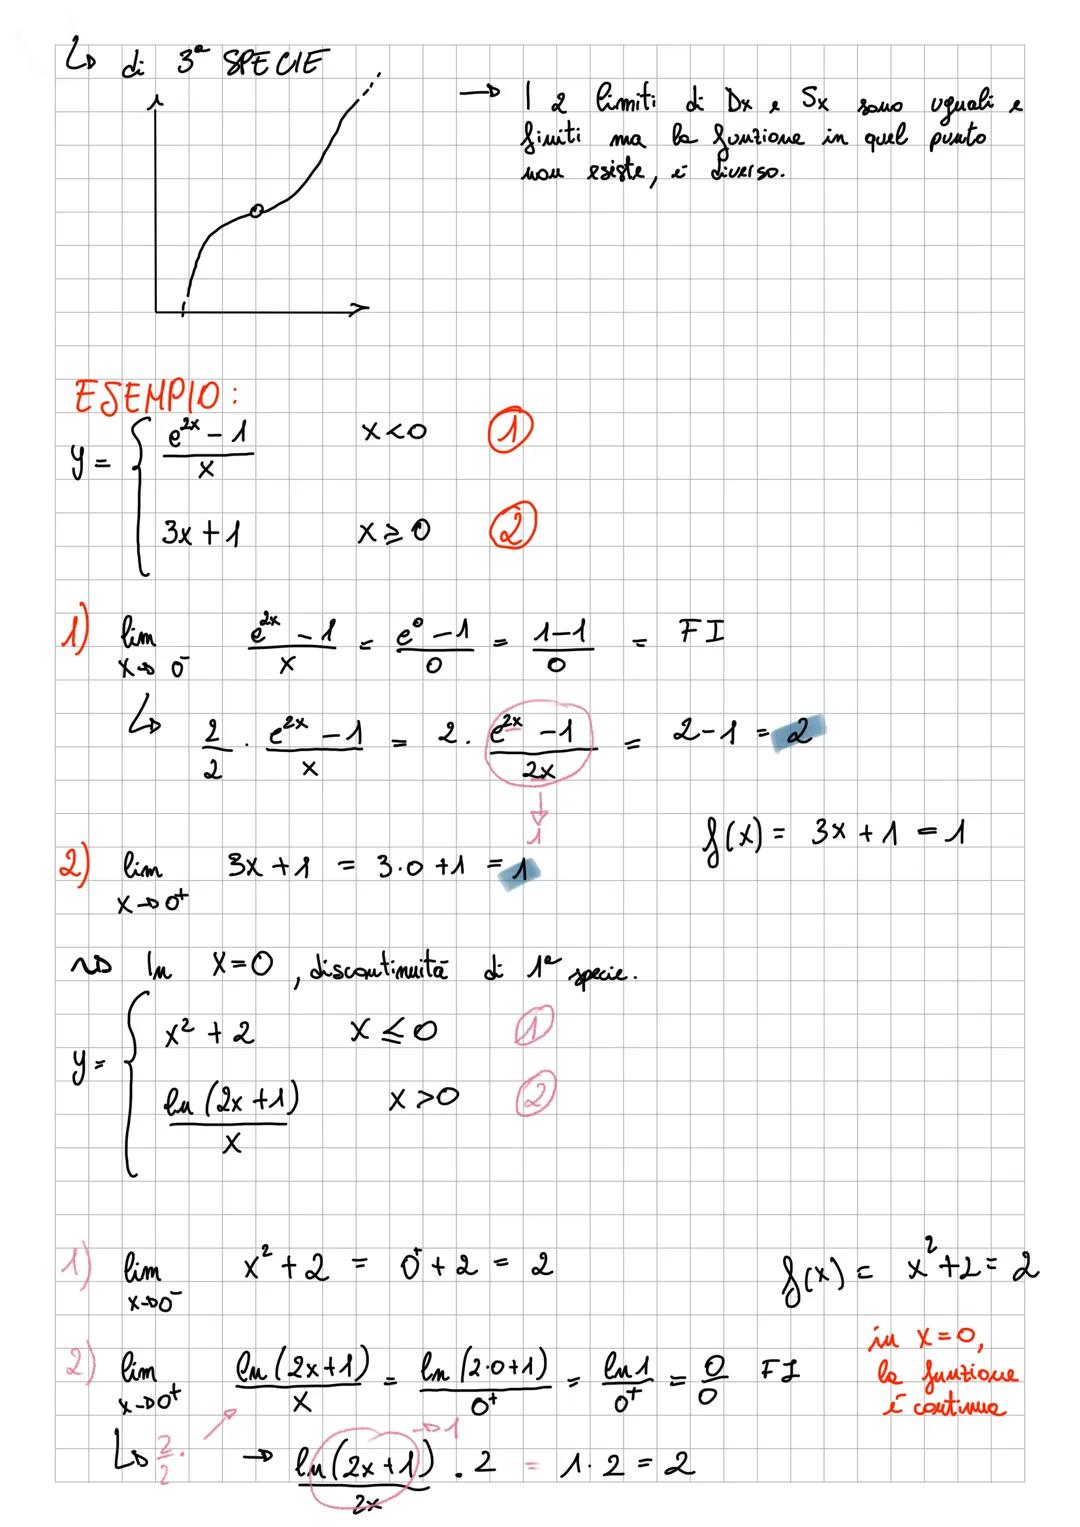 ↳ di 3ª SPECIE
→ I 2 limiti di Dx e Sx sono uguali e
finiti ma la funzione in quel punto
non esiste, è diverso.
ESEMPIO:
y = { (e^2x - 1)/x   x<0   ①
3x+1   x⩾0   ②
1) lim x→0⁻ (e^2x - 1)/x = (e^0 - 1)/0 = (1-1)/0 = FI
↳ 2/2 · (e^2x - 1)/x = 2 · (e^2x - 1)/2x = 2-1 = 2
↓
1
f(x) = 3x+1 = 1
2) lim x→0⁺ 3x+1 = 3·0+1 = 1
⇝ In x=0, discontinuità di 1ª specie.
y = { x² + 2   x⩽0   ①
ln(2x+1)/x   x>0   ②
1) lim x→0⁻ x²+2 = 0⁺+2 = 2   f(x) = x²+2 = 2
2) lim x→0⁺ ln(2x+1)/x = ln(2·0+1)/0⁺ = ln1/0⁺ = 0/0 FI
in x=0,
la funzione
è continua
↳ 2/2 · → ln(2x+1)/2x →1 · 2 = 1·2 = 2